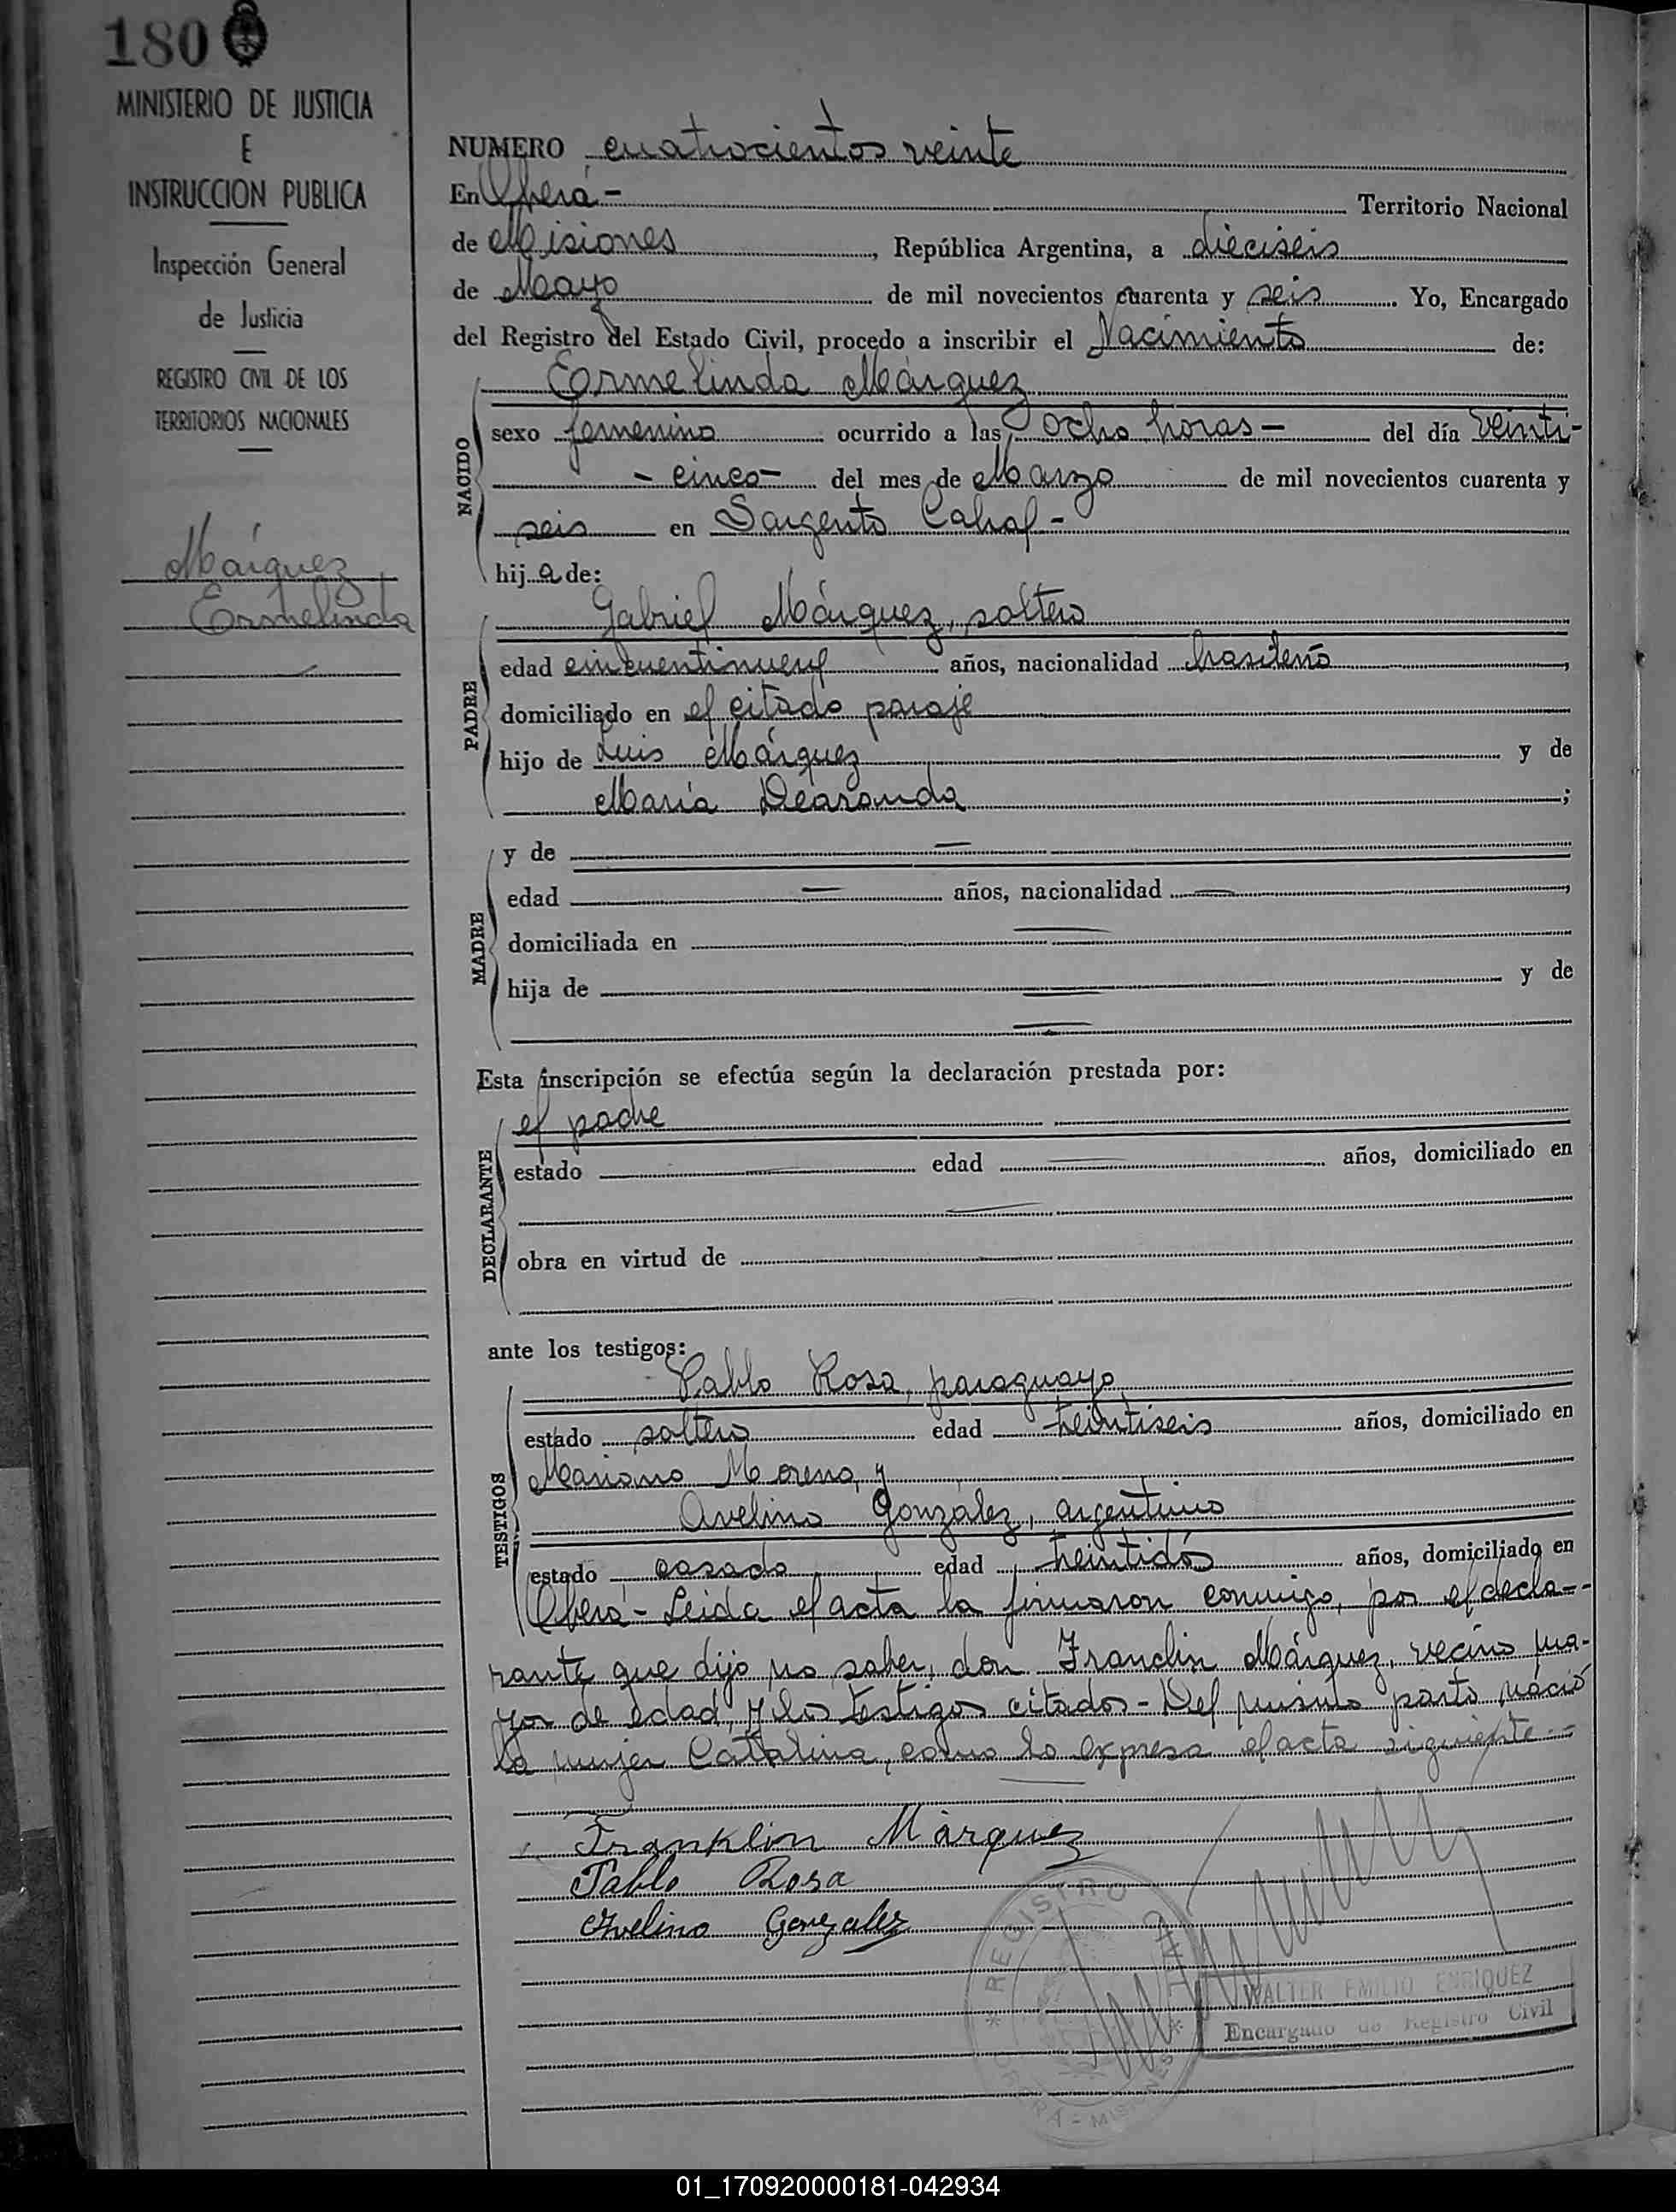 180
MINISTERIO DE JUSTICIA
E
INSTRUCCION PUBLICA
Inspección General
de Justicia
REGISTRO CIVIL DE LOS
TERRITORIOS NACIONALES
Márquez
Ermelinda
NUMERO cuatrocientos veinte
En Oberá - Territorio Nacional
de Misiones, República Argentina, a dieciseis
de Mayo de mil novecientos cuarenta y seis. Yo, Encargado
del Registro del Estado Civil, procedo a inscribir el Nacimiento de:
NACIDO
Ermelinda Márquez
sexo femenino ocurrido a las ocho horas - del día veinti-
- cinco - del mes de Marzo de mil novecientos cuarenta y
seis en Sargento Cabral -
hija de:
PADRE
Gabriel Márquez, soltero
edad cincuentinueve años, nacionalidad brasileño,
domiciliado en el citado paraje
hijo de Luis Márquez y de
María Dearanda;
MADRE
y de —
edad — años, nacionalidad —,
domiciliada en —
hija de — y de
—
Esta inscripción se efectúa según la declaración prestada por:
DECLARANTE
el padre
estado — edad — años, domiciliado en
—
obra en virtud de —
ante los testigos:
TESTIGOS
Pablo Rosa, paraguayo,
estado soltero edad treintiseis años, domiciliado en
Mariano Moreno, y
Avelino González, argentino
estado casado edad treintidós años, domiciliado en
Oberá - Leida el acta la firmaron conmigo, por el decla-
rante que dijo no saber, don Franclin Márquez, vecino ma-
yor de edad, y los testigos citados - Del mismo parto nació
la mujer Catalina, como lo expresa el acta siguiente. -
Franklin Márquez
Pablo Rosa
Avelino Gonzalez
REGISTRO CIVIL
OBERA - MISIONES
WALTER EMILIO ENRIQUEZ
Encargado de Registro Civil
01_170920000181-042934